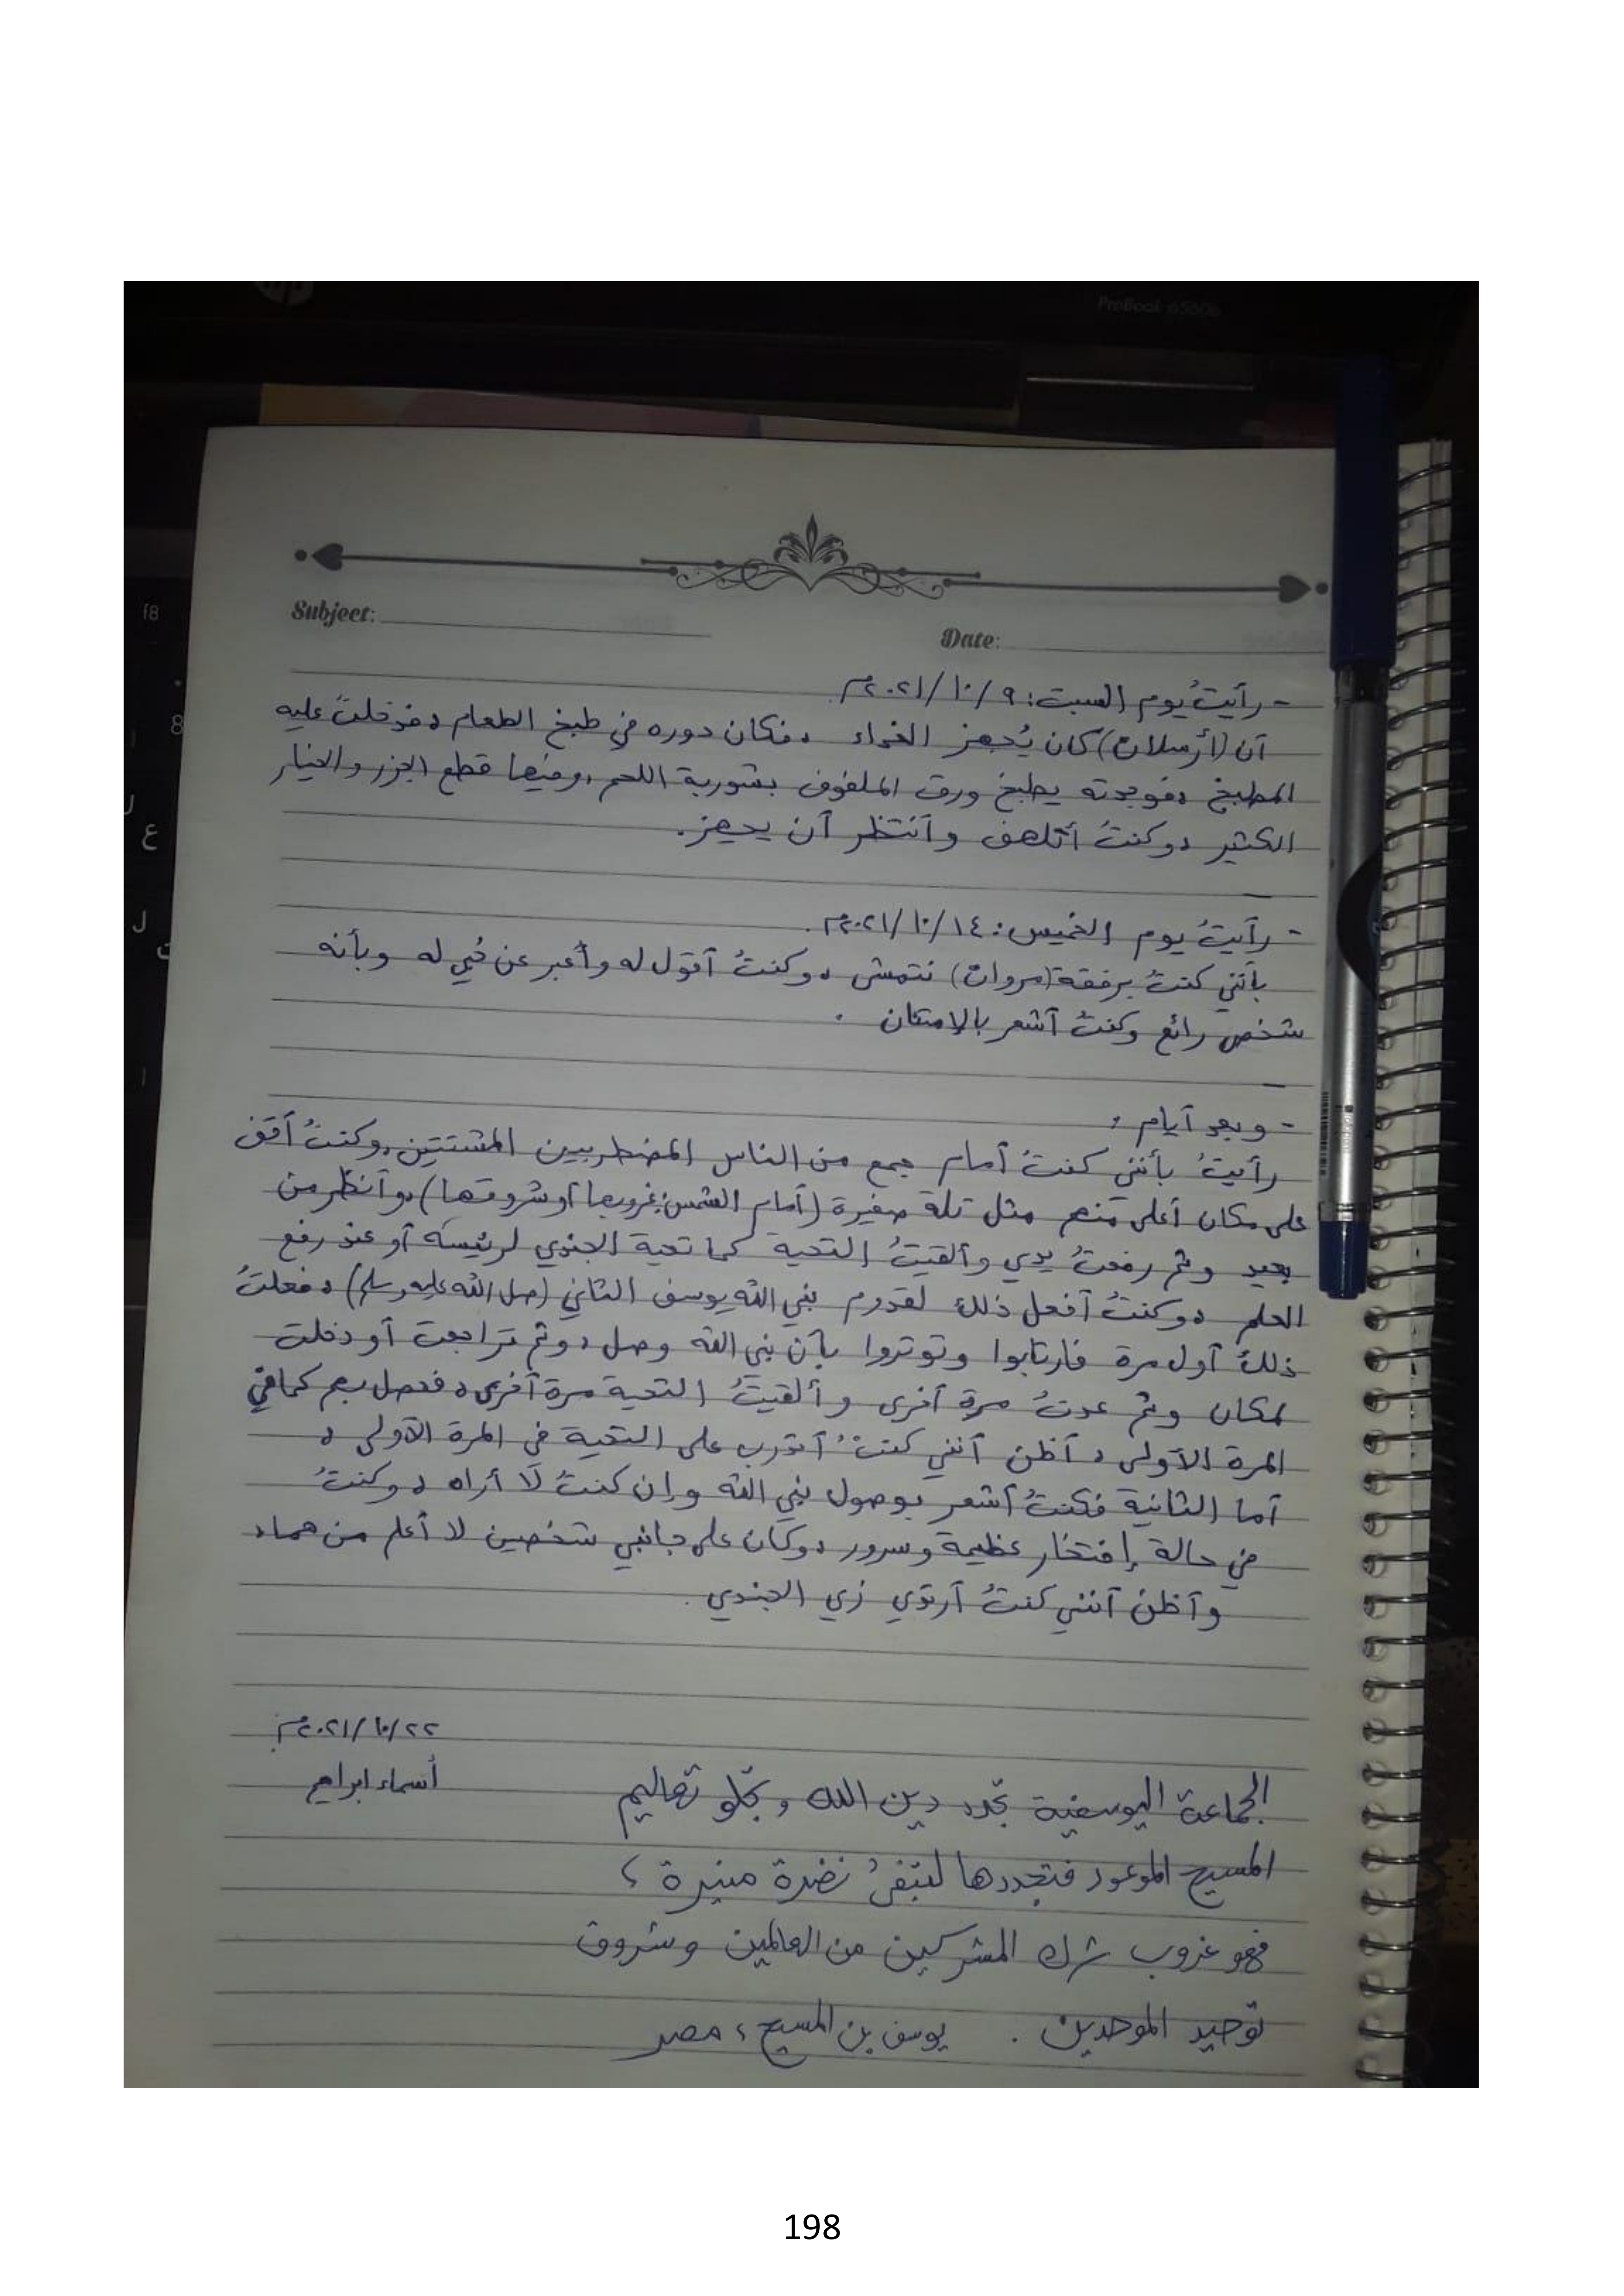 ProBook 6560b
Subject:
Date:
- رأيتُ يوم السبت: ٩/١٠/٢٠٢١م.
أن (أرسلان) كان يُجهز الغداء، فكان دوره في طبخ الطعام، فدخلتُ عليه
المطبخ، فوجدته يطبخ ورق الملفوف بشوربة اللحم، وفيها قطع الجزر والخيار
الكثير، وكنتُ أتلهف وأنتظر أن يجهز.
- رأيتُ يوم الخميس: ١٤/١٠/٢٠٢١م.
بأنني كنتُ برفقة (مروان) نتمشى، وكنتُ أقول له وأعبر عن حُبي له وبأنه
شخص رائع وكنتُ أشعر بالإمتنان.
- وبعد أيام:
رأيتُ بأنني كنتُ أمام جمع من الناس المضطربين المشتتين، وكنتُ أقف
على مكان أعلى منهم مثل تلة صغيرة (أمام الشمس: غروبها أو شروقها)، وأنظر من
بعيد وثم رفعتُ يدي وألقيتُ التحية كما تحية الجندي لرئيسه أو عند رفع
العلم، وكنتُ أفعل ذلك لقدوم نبي الله يوسف الثاني (صلى الله عليه وسلم)، فعلتُ
ذلك أول مرة فارتابوا وتوتروا بأن نبي الله وصل، وثم تراجعت أو دخلت
لمكان وثم عدتُ مرة أخرى وألقيتُ التحية مرة أخرى، فحصل بهم كما في
المرة الأولى، أظن أنني كنتُ أتدرب على التحية في المرة الأولى،
أما الثانية فكنتُ أشعر بوصول نبي الله وإن كنتُ لا أراه، وكنتُ
في حالة إفتخار عظيمة وسرور، وكان على جانبي شخصين لا أعلم من هما،
وأظن أنني كنتُ أرتدي زي الجندي.
٢٢/١٠/٢٠٢١م.
أسماء ابراهيم
الجماعة اليوسفية تجدد دين الله وتجلو تعاليم
المسيح الموعود فتجددها لتبقى نضرة منيرة،
فهو غروب شرك المشركين من العالمين وشروق
توحيد الموحدين. يوسف بن المسيح، مصر
198